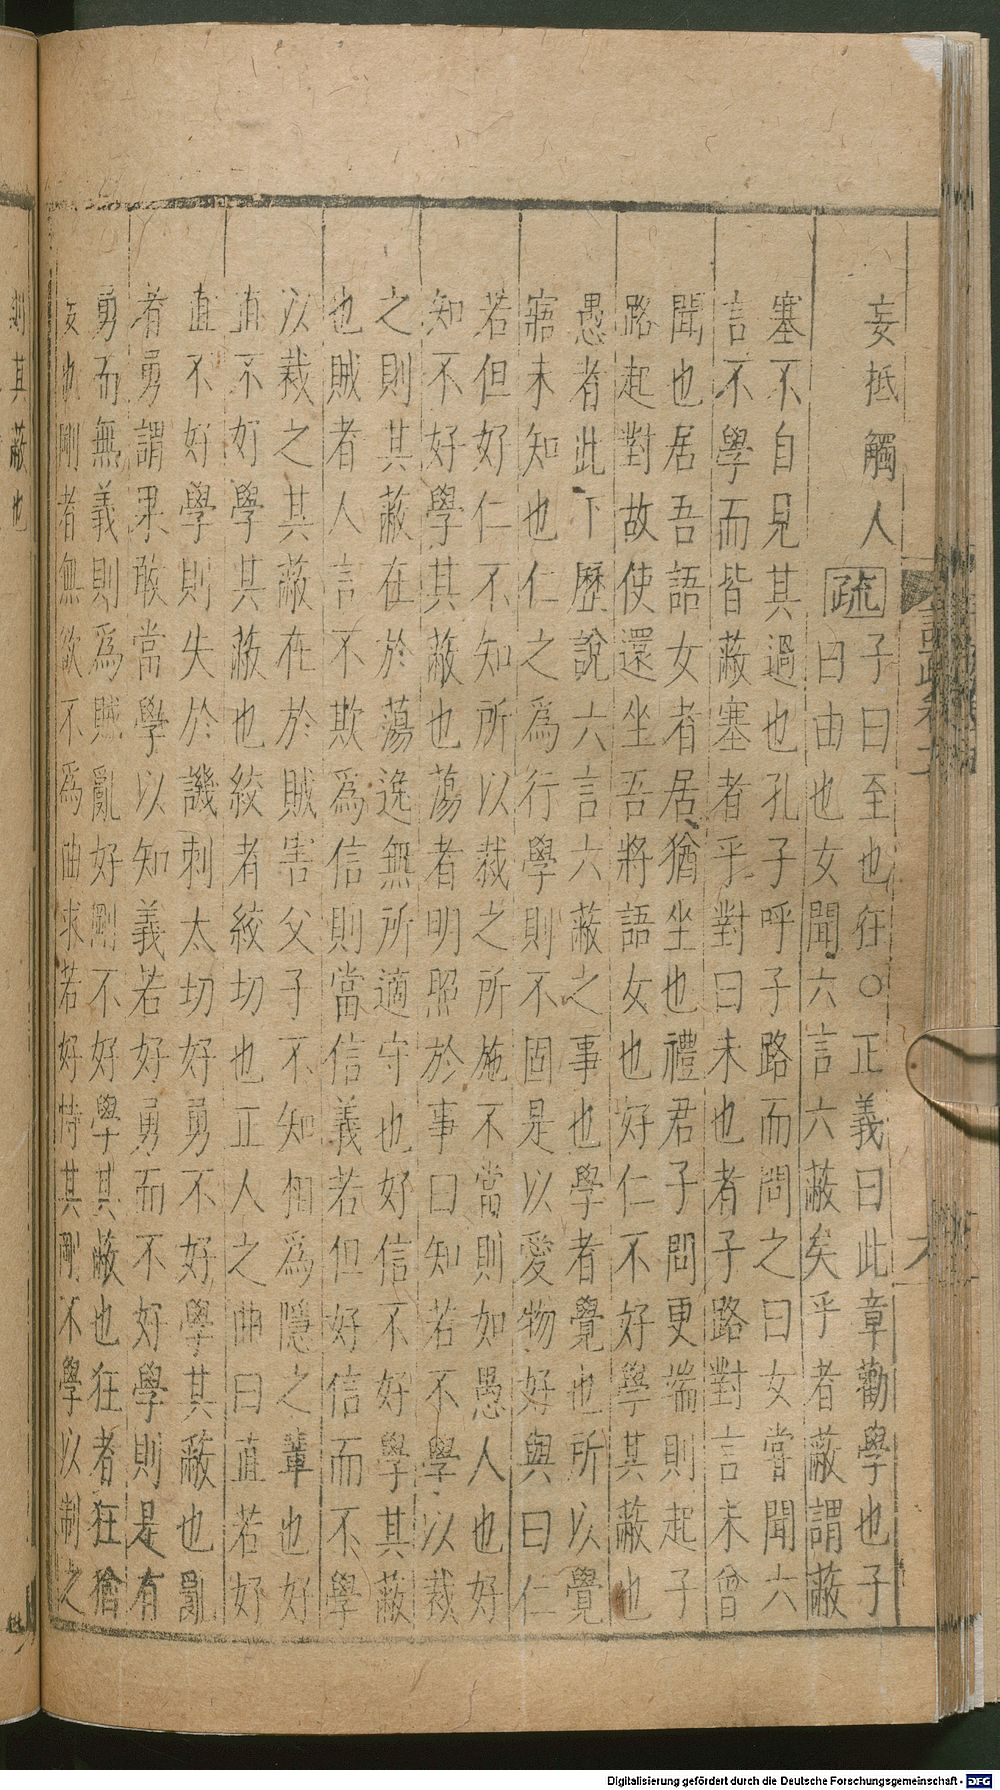 妄抵觸人
疏
子曰至也狂○正義曰此章勸學也子
曰由也女聞六言六蔽矣乎者蔽謂蔽
塞不自見其過也孔子呼子路而問之曰女嘗聞六
言不學而皆蔽塞者乎對曰未也者子路對言未曾
聞也居吾語女者居猶坐也禮君子問更端則起子
路起對故使還坐吾將語女也好仁不好學其蔽也
愚者此下歷說六言六蔽之事也學者覺也所以覺
寤未知也仁之為行學則不固是以愛物好與曰仁
若但好仁不知所以裁之所施不當則如愚人也好
知不好學其蔽也蕩者明照於事曰知若不學以裁
之則其蔽在於蕩逸無所適守也好信不好學其蔽
也賊者人言不欺為信則當信義若但好信而不學
以裁之其蔽在於賊害父子不知相為隱之輩也好
直不好學其蔽也絞者絞切也正人之曲曰直若好
直不好學則失於譏刺太切好勇不好學其蔽也亂
者勇謂果敢當學以知義若好勇而不好學則是有
勇而無義則為賊亂好剛不好學其蔽也狂者狂猶
妄也剛者無欲不為曲求若好恃其剛不學以制之
則其蔽也
Digitalisierung gefördert durch die Deutsche Forschungsgemeinschaft - DFG